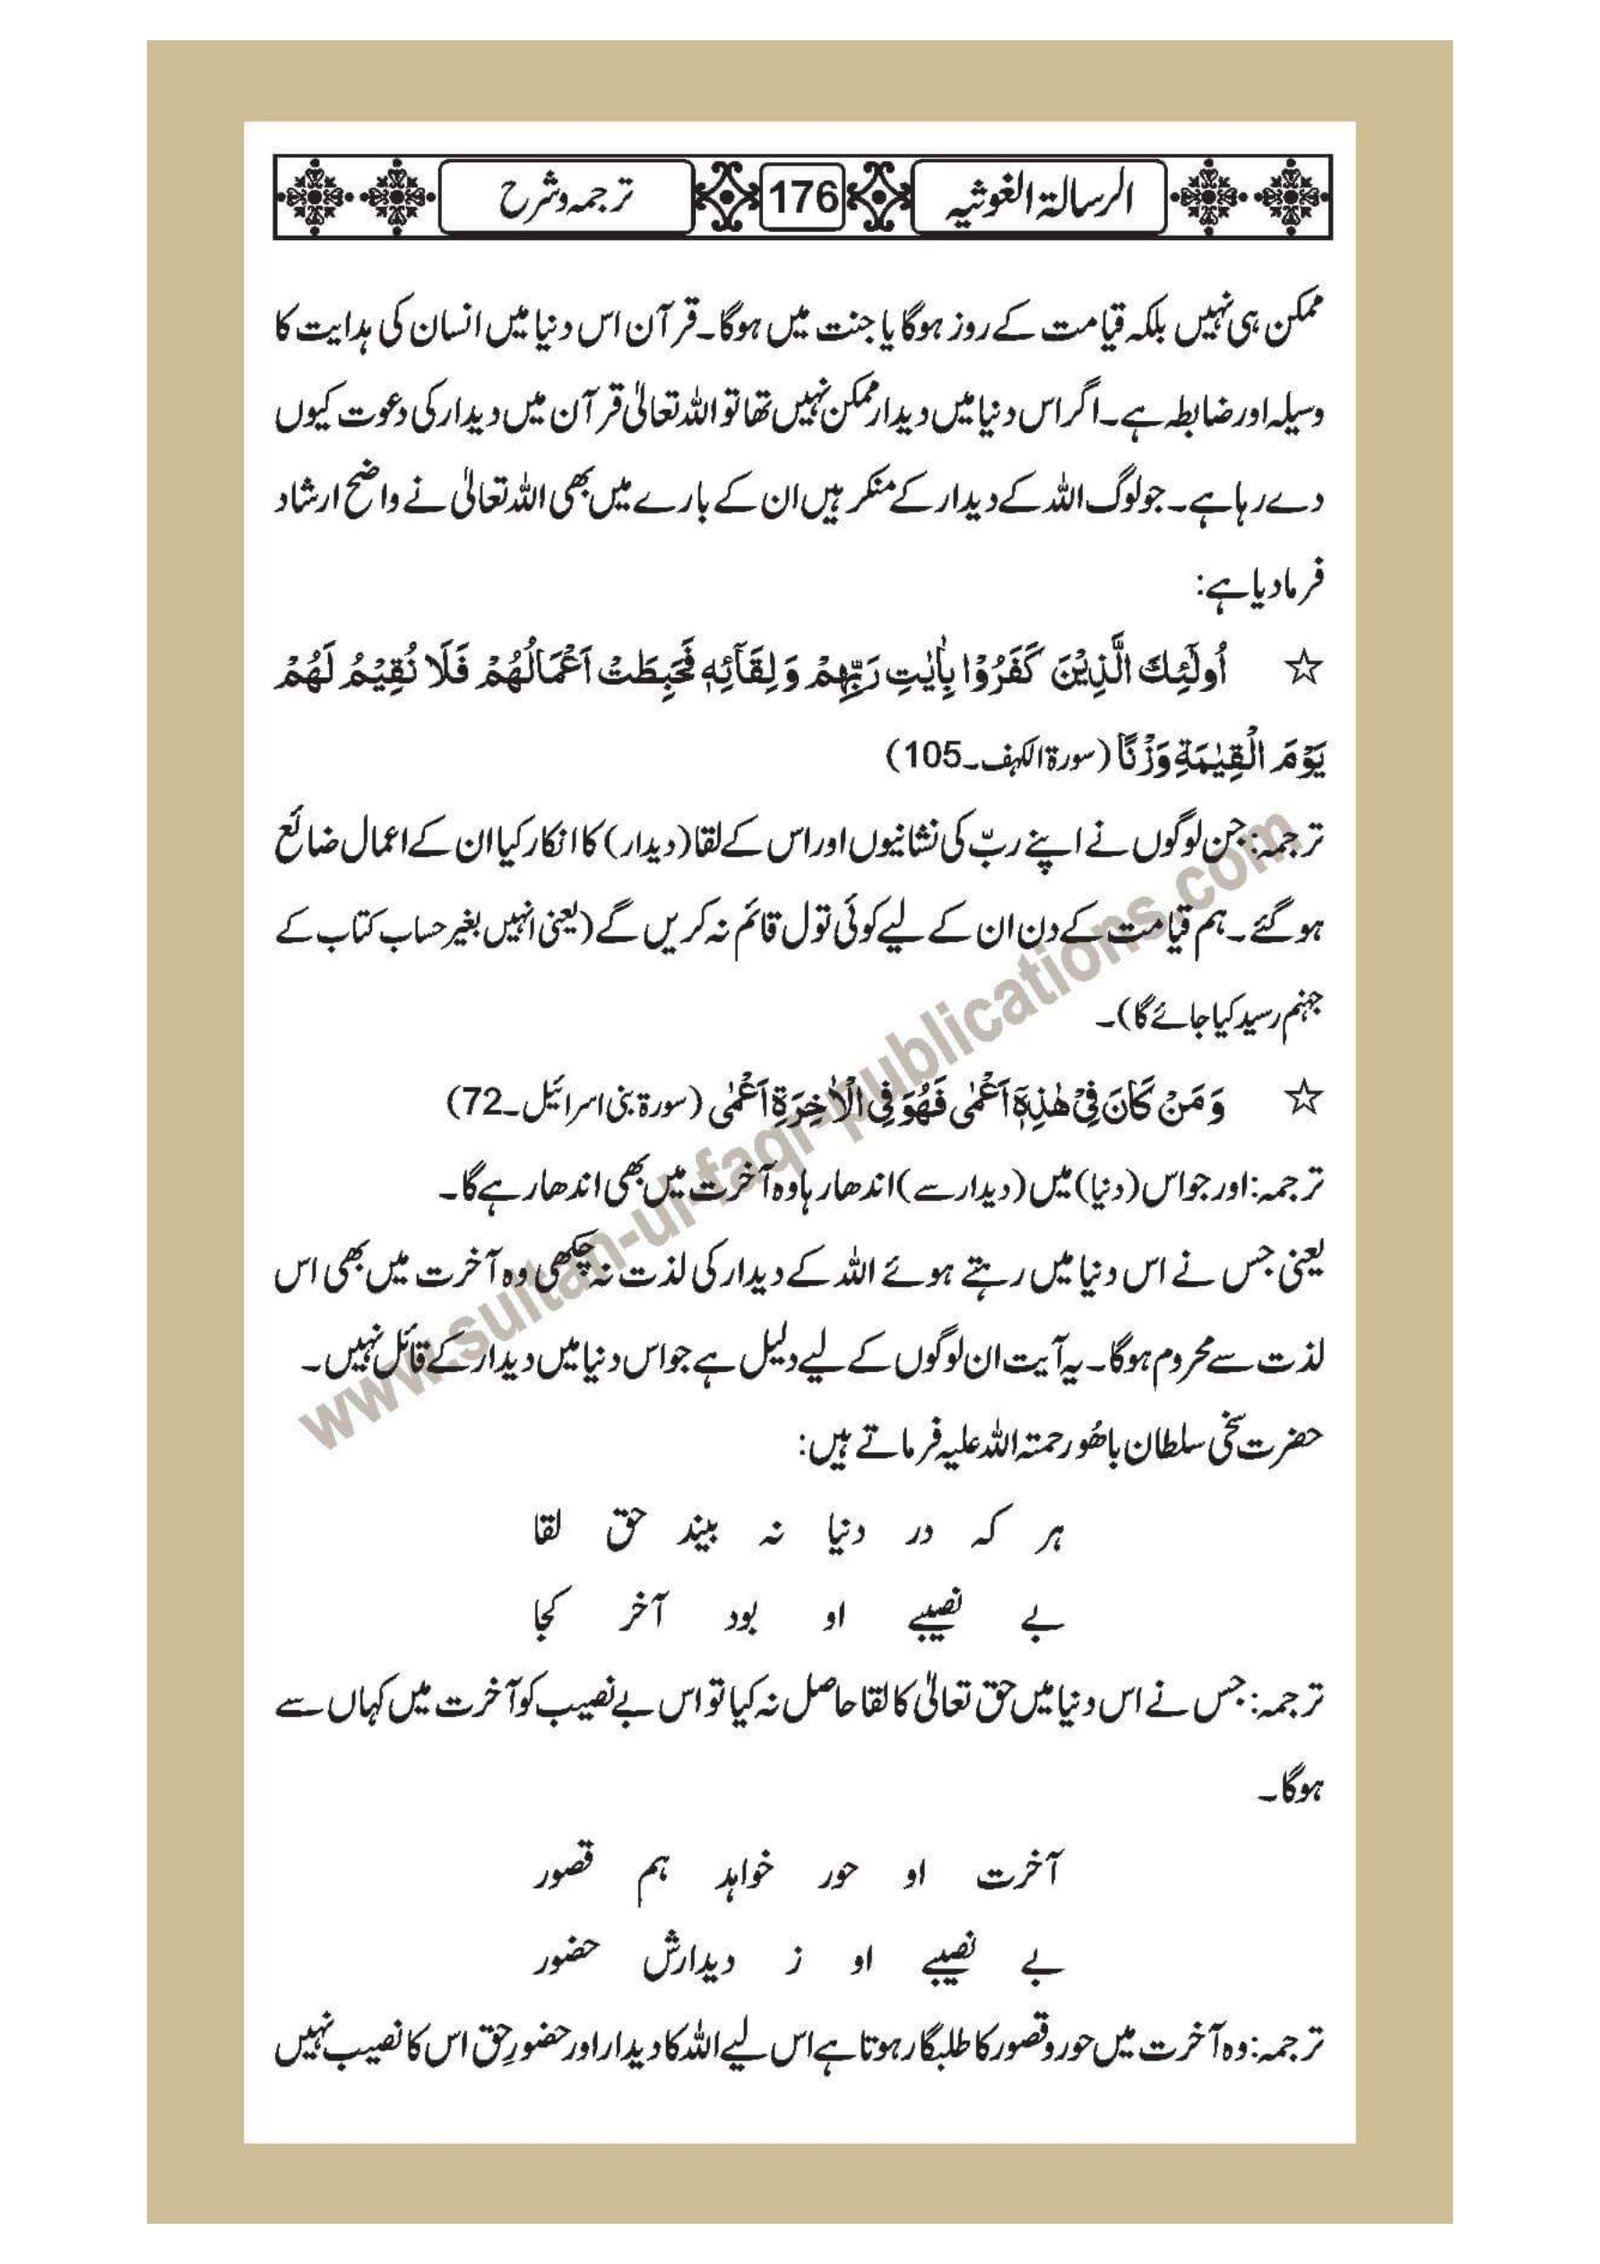 الرسالۃ الغوثیہ
176
ترجمہ و شرح
ممکن ہی نہیں بلکہ قیامت کے روز ہوگا یا جنت میں ہوگا۔ قرآن اس دنیا میں انسان کی ہدایت کا
وسیلہ اور ضابطہ ہے۔ اگر اس دنیا میں دیدار ممکن نہیں تھا تو اللہ تعالیٰ قرآن میں دیدار کی دعوت کیوں
دے رہا ہے۔ جو لوگ اللہ کے دیدار کے منکر ہیں ان کے بارے میں بھی اللہ تعالیٰ نے واضح ارشاد
فرما دیا ہے:
☆ اُولٰٓئِكَ الَّذِیْنَ كَفَرُوْا بِاٰیٰتِ رَبِّهِمْ وَ لِقَآئِهٖ فَحَبِطَتْ اَعْمَالُهُمْ فَلَا نُقِیْمُ لَهُمْ
یَوْمَ الْقِیٰمَةِ وَزْنًا (سورۃ الکہف۔105)
ترجمہ: جن لوگوں نے اپنے ربّ کی نشانیوں اور اس کے لقا (دیدار) کا انکار کیا ان کے اعمال ضائع
ہو گئے۔ ہم قیامت کے دن ان کے لیے کوئی تول قائم نہ کریں گے (یعنی انہیں بغیر حساب کتاب کے
جہنم رسید کیا جائے گا)۔
☆ وَ مَنْ كَانَ فِیْ هٰذِهٖۤ اَعْمٰى فَهُوَ فِی الْاٰخِرَةِ اَعْمٰى (سورۃ بنی اسرائیل۔72)
ترجمہ: اور جو اس (دنیا) میں (دیدار سے) اندھا رہا وہ آخرت میں بھی اندھا رہے گا۔
یعنی جس نے اس دنیا میں رہتے ہوئے اللہ کے دیدار کی لذت نہ چکھی وہ آخرت میں بھی اس
لذت سے محروم ہوگا۔ یہ آیت ان لوگوں کے لیے دلیل ہے جو اس دنیا میں دیدار کے قائل نہیں۔
حضرت سخی سلطان باھُو رحمتہ اللہ علیہ فرماتے ہیں:
ہر کہ در دنیا نہ بیند حق لقا
بے نصیبے او بود آخر کجا
ترجمہ: جس نے اس دنیا میں حق تعالیٰ کا لقا حاصل نہ کیا تو اس بے نصیب کو آخرت میں کہاں سے
ہوگا۔
آخرت او حور خواہد ہم قصور
بے نصیبے او ز دیدارش حضور
ترجمہ: وہ آخرت میں حور و قصور کا طلبگار ہوتا ہے اس لیے اللہ کا دیدار اور حضورِ حق اس کا نصیب نہیں
www.sultan-ul-faqr-publications.com